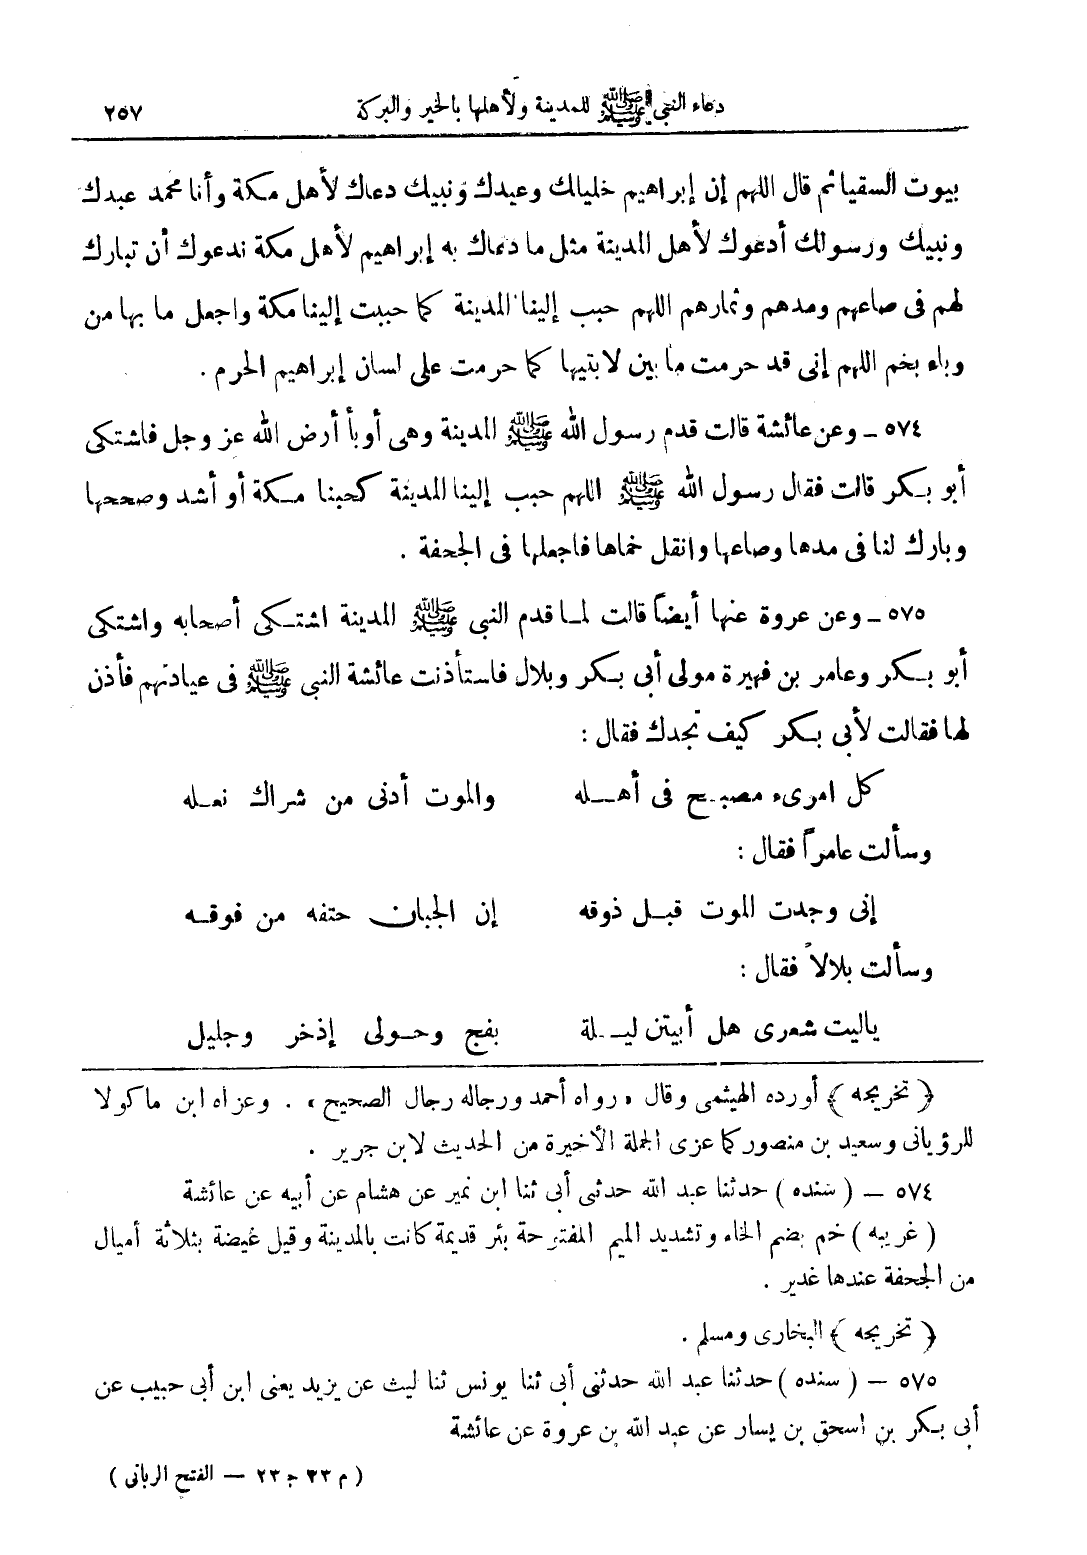 دعاء النبي ﷺ للمدينة ولأهلها بالخير والبركة ٢٥٧
بيوت السقيا ثم قال اللهم إن إبراهيم خليلك وعبدك ونبيك دعاك لأهل مكة وأنا محمد عبدك
ونبيك ورسولك أدعوك لأهل المدينة مثل ما دعاك به إبراهيم لأهل مكة ندعوك أن تبارك
لهم فى صاعهم ومدهم وثمارهم اللهم حبب إلينا المدينة كما حببت إلينا مكة واجعل ما بها من
وباء بخم اللهم إنى قد حرمت ما بين لابتيها كما حرمت على لسان إبراهيم الحرم .
٥٧٤ ـ وعن عائشة قالت قدم رسول الله ﷺ المدينة وهى أوبأ أرض الله عز وجل فاشتكى
أبو بكر قالت فقال رسول الله ﷺ اللهم حبب إلينا المدينة كحبنا مكة أو أشد وصححها
وبارك لنا فى مدها وصاعها وانقل حماها فاجعلها فى الجحفة .
٥٧٥ ـ وعن عروة عنها أيضاً قالت لما قدم النبى ﷺ المدينة اشتكى أصحابه واشتكى
أبو بكر وعامر بن فهيرة مولى أبى بكر وبلال فاستأذنت عائشة النبى ﷺ فى عيادتهم فأذن
لها فقالت لأبى بكر كيف تجدك فقال :
كل امرىء مصبح فى أهله والموت أدنى من شراك نعله
وسألت عامراً فقال :
إنى وجدت الموت قبل ذوقه إن الجبان حتفه من فوقه
وسألت بلالاً فقال :
ياليت شعرى هل أبيتن ليلة بفج وحولى إذخر وجليل
﴿ تخريجه ﴾ أورده الهيثمى وقال « رواه أحمد ورجاله رجال الصحيح » . وعزاه ابن ماكولا
للرؤيانى وسعيد بن منصور كما عزى الجملة الأخيرة من الحديث لابن جرير .
٥٧٤ – ( سنده ) حدثنا عبد الله حدثى أبى ثنا ابن نمير عن هشام عن أبيه عن عائشة
( غريبه ) خم بضم الخاء وتشديد الميم المفتوحة بئر قديمة كانت بالمدينة وقيل غيضة بثلاثة أميال
من الجحفة عندها غدير .
﴿ تخريجه ﴾ البخارى ومسلم .
٥٧٥ – ( سنده ) حدثنا عبد الله حدثنى أبى ثنا يونس ثنا ليث عن يزيد يعنى ابن أبى حبيب عن
أبى بكر بن اسحق بن يسار عن عبد الله بن عروة عن عائشة
( م ٣٣ ج ٢٣ – الفتح الربانى )